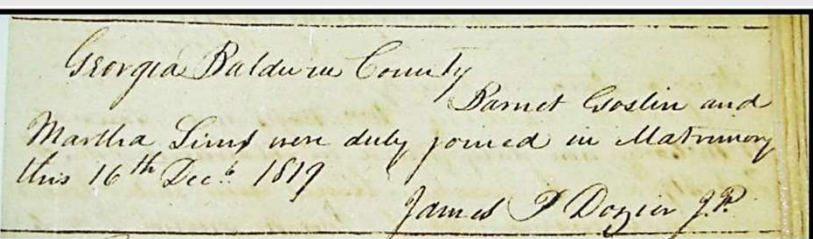 Georgia Baldwin County
Barnet Goslin and
Martha Sims were duly joined in Matrimony
this 16th Decr 1819
James P Dozier J.P.